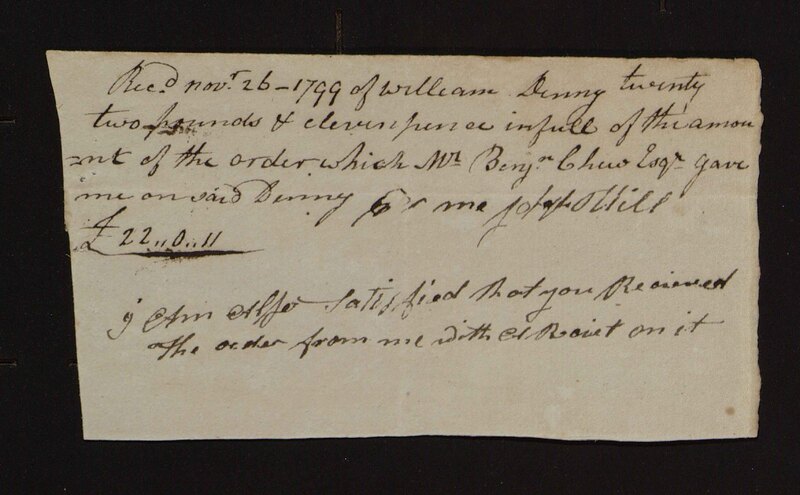 Rec.d novr. 26 - 1799 of william Denny twenty
two pounds & eleven pence in full of the amou
nt of the order which Mr. Benjn. Chew Esqr. gave
me on said Denny me
£ 22,,0,,11
I Am Also Satisfied that you Recieved
the order from me with A Reciet on it